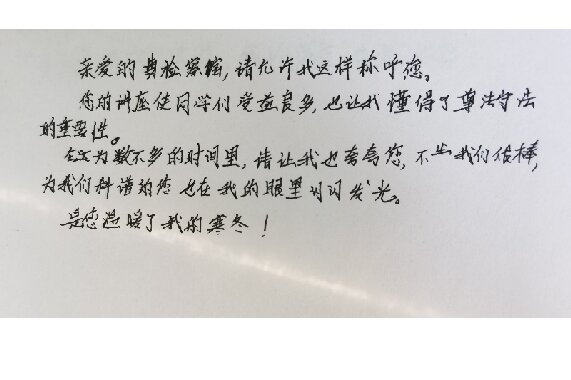 亲爱的曹检察官,请允许我这样称呼您。
您的讲座使同学们受益良多,也让我懂得了尊法守法
的重要性。
在这为数不多的时间里,请让我也夸夸您,不止我们很棒,
为我们科谱的您也在我的眼里闪闪发光。
是您温暖了我的寒冬!